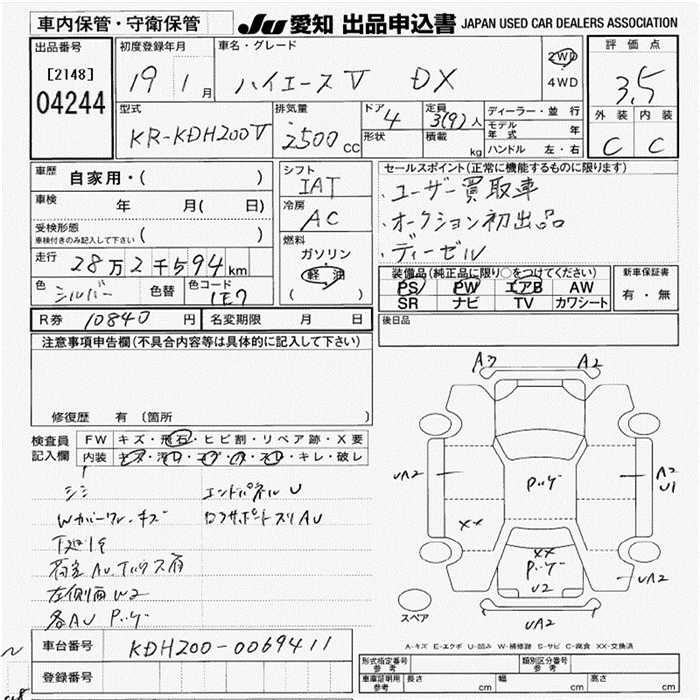 車内保管・守衛保管
JU 愛知 出品申込書 JAPAN USED CAR DEALERS ASSOCIATION
出品番号
[2148]
04244
初度登録年月
19 1 月
車名・グレード
ハイエースV DX
2WD
4WD
評価点
3.5
外装 内装
C C
型式
KR-KDH200V
排気量
2500 CC
ドア 4
形状
定員 3(9)人
積載 kg
ディーラー・並行
モデル年式 年
ハンドル 左・右
車歴 自家用・( )
車検 年 月( 日)
受検形態
車検付きのみ記入して下さい ( )
走行 28万2千594km
色 シルバー 色替 色コード 1E7
シフト
IAT
冷房
AC
燃料
ガソリン
軽油
( )
セールスポイント(正常に機能するものに限ります)
・ユーザー買取車
・オークション初出品
・ディーゼル
装備品(純正品に限り○をつけてください)
PS PW エアB AW
SR ナビ TV カワシート
新車保証書
有・無
R券 10840 円 名変期限 月 日
後日品
注意事項申告欄(不具合内容等は具体的に記入して下さい)
修復歴 有 (箇所 )
検査員記入欄
FW キズ・飛石・ヒビ割・リペア跡・X要
内装 キズ・汚レ・コゲ・穴・スレ・キレ・破レ
シミ エンドパネルU
Wカバーワレ・キズ
下廻リS
左側面W2
各AU Pハゲ
A2 A2
UA2 Pハゲ A2
U1
XX XX
Pハゲ
U2 UA2
UA2
スペア
A-キズ E-エクボ U-凹み W-補修跡 S-サビ C-腐食 XX-交換済
車台番号 KDH200-0069411
登録番号
形式指定番号
参考
類別区分番号
参考
車庫証明用
参考
長さ cm 幅 cm 高さ cm